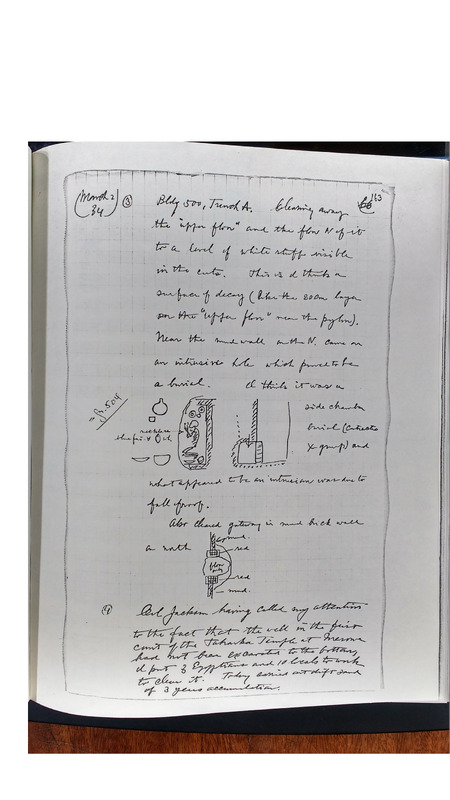 March 2
34
③
163
Bldg 500, Trench A. Clearing away
the "upper floor" and the floor N of it
to a level of white stuff visible
in the cuts. This I think a
surface of decay (like the 20cm layer
on the "upper floor" near the pylon).
Near the mud wall on the N. came on
an intrusive hole which proved to be
a burial. I think it was a
= p. 504
side chamber
necklace
burial
X-group) and
what appeared to be an intrusion was due to
fall of roof.
Also cleared gateway in mud brick wall
on north
mud.
red
floor
red
mud.
④
Col. Jackson having called my attention
to the fact that the well in the first
court of the Taharka Temple at Merowe
have not been excavated to the bottom,
I put 3 Egyptians and 10 locals to work
to clear it. Today carried out drift sand
of 3 years accumulation.